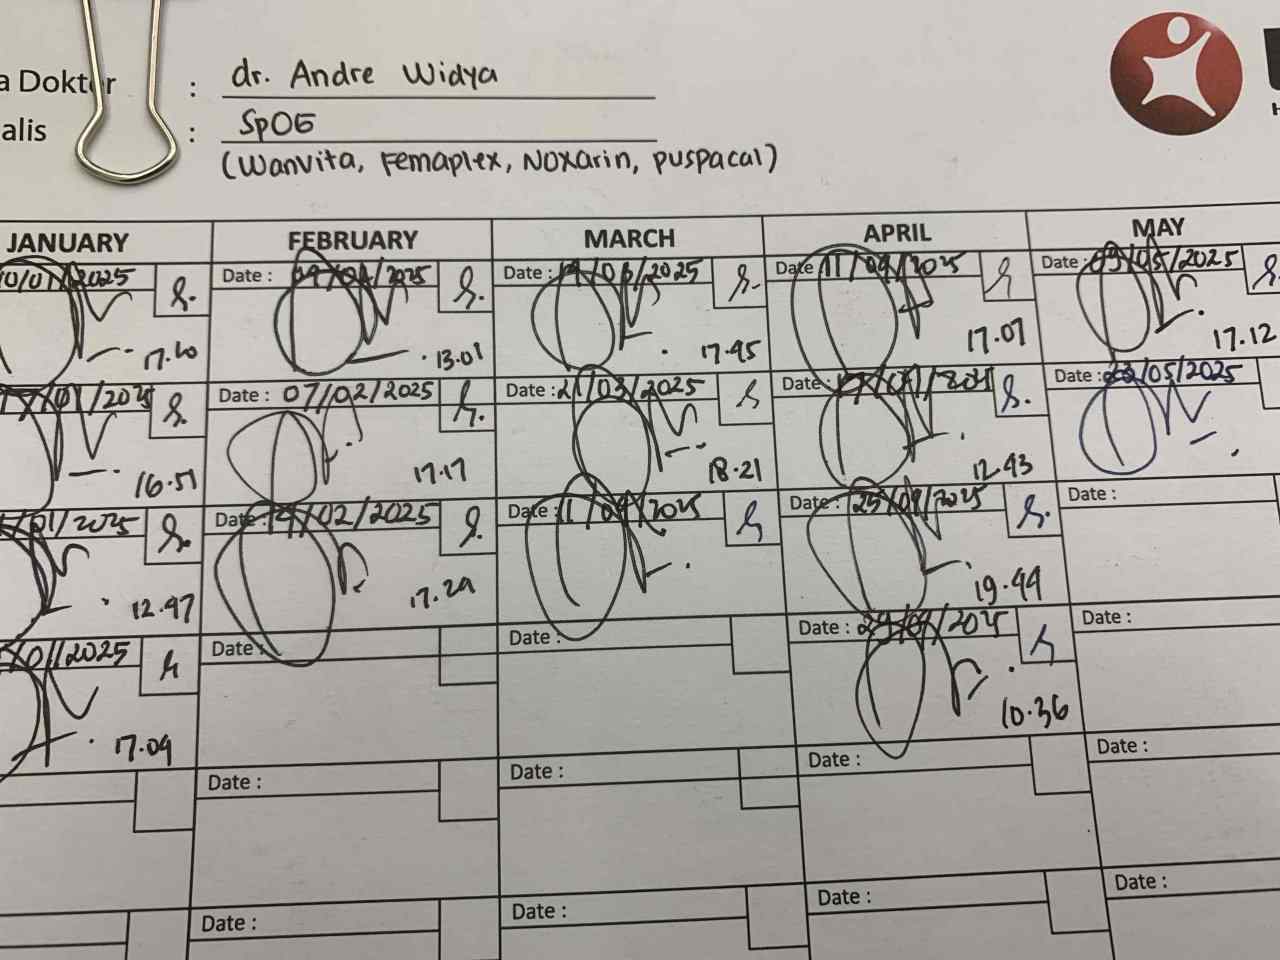 a Dokter : dr. Andre Widya
alis : SpOG
(Wanvita, Femaplex, Noxarin, puspacal)
JANUARY FEBRUARY MARCH APRIL MAY
/01/2025 Date : /2025 Date : 14/03/2025 Date 11/04/2025 Date : 09/05/2025
17.10 13.01 17.45 17.07 17.12
/01/2025 Date : 07/02/2025 Date : 21/03/2025 Date : Date : /05/2025
16.51 17.17 18.21 12.43
/01/2025 Date : 14/02/2025 Date : 11/04/2025 Date : 25/04/2025 Date :
12.47 17.29 19.44
/01/2025 Date : Date : Date : 29/04/2025 Date :
17.09 10.36
Date : Date : Date : Date :
Date : Date : Date : Date :